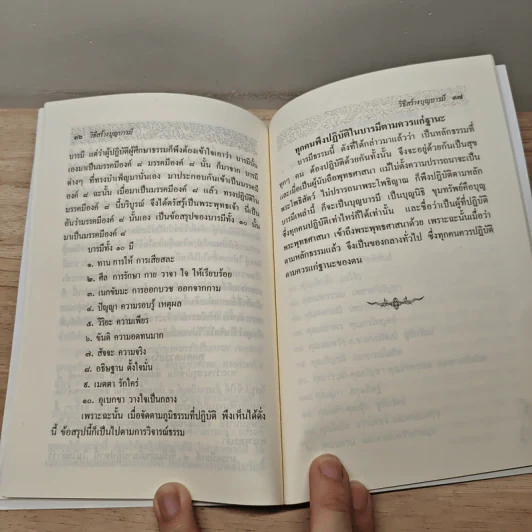 ๓๖ วิธีสร้างบุญบารมี
บารมี แต่ว่าผู้ปฏิบัติผู้ศึกษาธรรมก็พึงต้องเข้าใจเอาว่า บารมีนั้น
เองก็เป็นมรรคมีองค์ ๘ มรรคมีองค์ ๘ นั้น ก็มาจาก บารมี
ต่างๆ ที่ทรงบำเพ็ญมานั่นเอง มาประกอบกันเข้าเป็นมรรคมี
องค์ ๘ ฉะนั้น เมื่อมาเป็นมรรคมีองค์ ๘ แล้ว ทรงปฏิบัติใน
มรรคมีองค์ ๘ นี้บริบูรณ์ จึงได้ตรัสรู้เป็นพระพุทธเจ้า นี้เป็น
อันว่ามรรคมีองค์ ๘ นั่นเอง เป็นข้อสรุปของบารมีทั้ง ๑๐ นั้น
มาเป็นมรรคมีองค์ ๘
บารมีทั้ง ๑๐ มี
๑. ทาน การให้ การเสียสละ
๒. ศีล การรักษา กาย วาจา ใจ ให้เรียบร้อย
๓. เนกขัมมะ การออกบวช ออกจากกาม
๔. ปัญญา ความรอบรู้ เหตุผล
๕. วิริยะ ความเพียร
๖. ขันติ ความอดทนมาก
๗. สัจจะ ความจริง
๘. อธิษฐาน ตั้งใจมั่น
๙. เมตตา รักใคร่
๑๐. อุเบกขา วางใจเป็นกลาง
เพราะฉะนั้น เมื่อจัดตามภูมิธรรมที่ปฏิบัติ พึงเห็นได้ดั่ง
นี้ ข้อสรุปนี้ก็เป็นไปตามการวิจารณ์ธรรม
วิธีสร้างบุญบารมี ๓๗
ทุกคนพึงปฏิบัติในบารมีตามควรแก่ฐานะ
บารมีธรรมนี้ ดังที่ได้กล่าวมาแล้วว่า เป็นหลักธรรมที่
ทุกๆ คน ต้องปฏิบัติด้วยกันทั้งนั้น จึงจะอยู่ด้วยกันเป็นสุข
และเมื่อเป็นผู้นับถือพุทธศาสนา แม้ไม่ตั้งความปรารถนาจะเป็น
พระโพธิสัตว์ ไม่ปรารถนาพระโพธิญาณ ก็พึงปฏิบัติตามหลัก
บารมีเหล่านี้ ก็จะเป็นบุญบารมี เป็นบุญนิธิ ขุมทรัพย์คือบุญ
ซึ่งทุกคนปฏิบัติทำให้ก็ได้เท่านั้น และชื่อว่าเป็นผู้ที่ปฏิบัติ
พระพุทธศาสนา เข้าถึงพระพุทธศาสนาด้วย เพราะฉะนั้นเมื่อว่า
ตามหลักธรรมแล้ว จึงเป็นของกลางทั่วไป ซึ่งทุกคนควรปฏิบัติ
ตามควรแก่ฐานะของตน